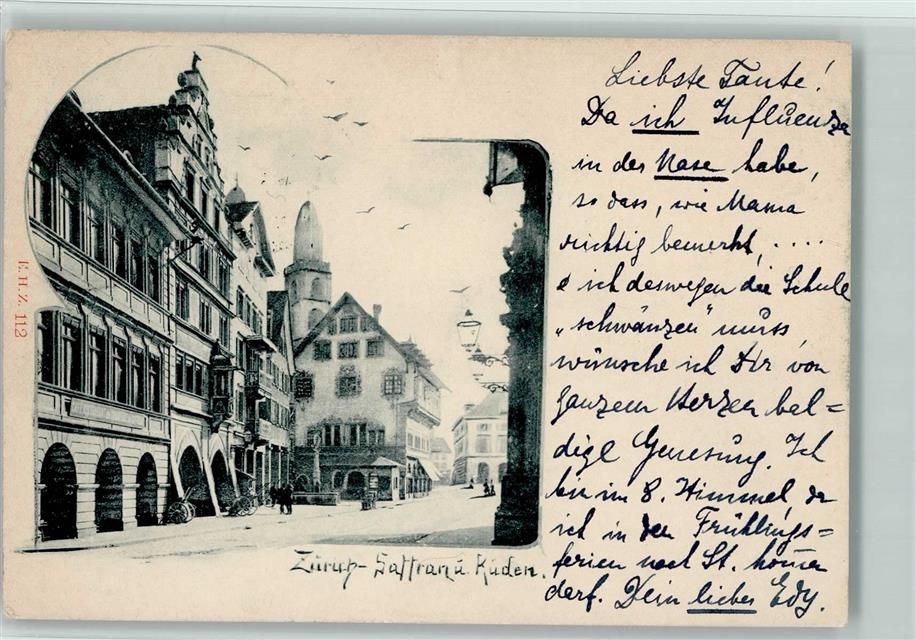 Liebste Tante!
Da ich Influenza
in der Nase habe,
so dass, wie Mama
richtig bemerkt, ....
ich deswegen die Schule
„schwänzen" muss
wünsche ich Dir von
ganzem Herzen bal=
dige Genesung. Ich
bin im 8. Himmel da
ich in den Frühlings=
ferien nach St. kommen
darf. Dein liebes Edy.
E. H. Z. 112
Zürich - Saffran u. Rüden.